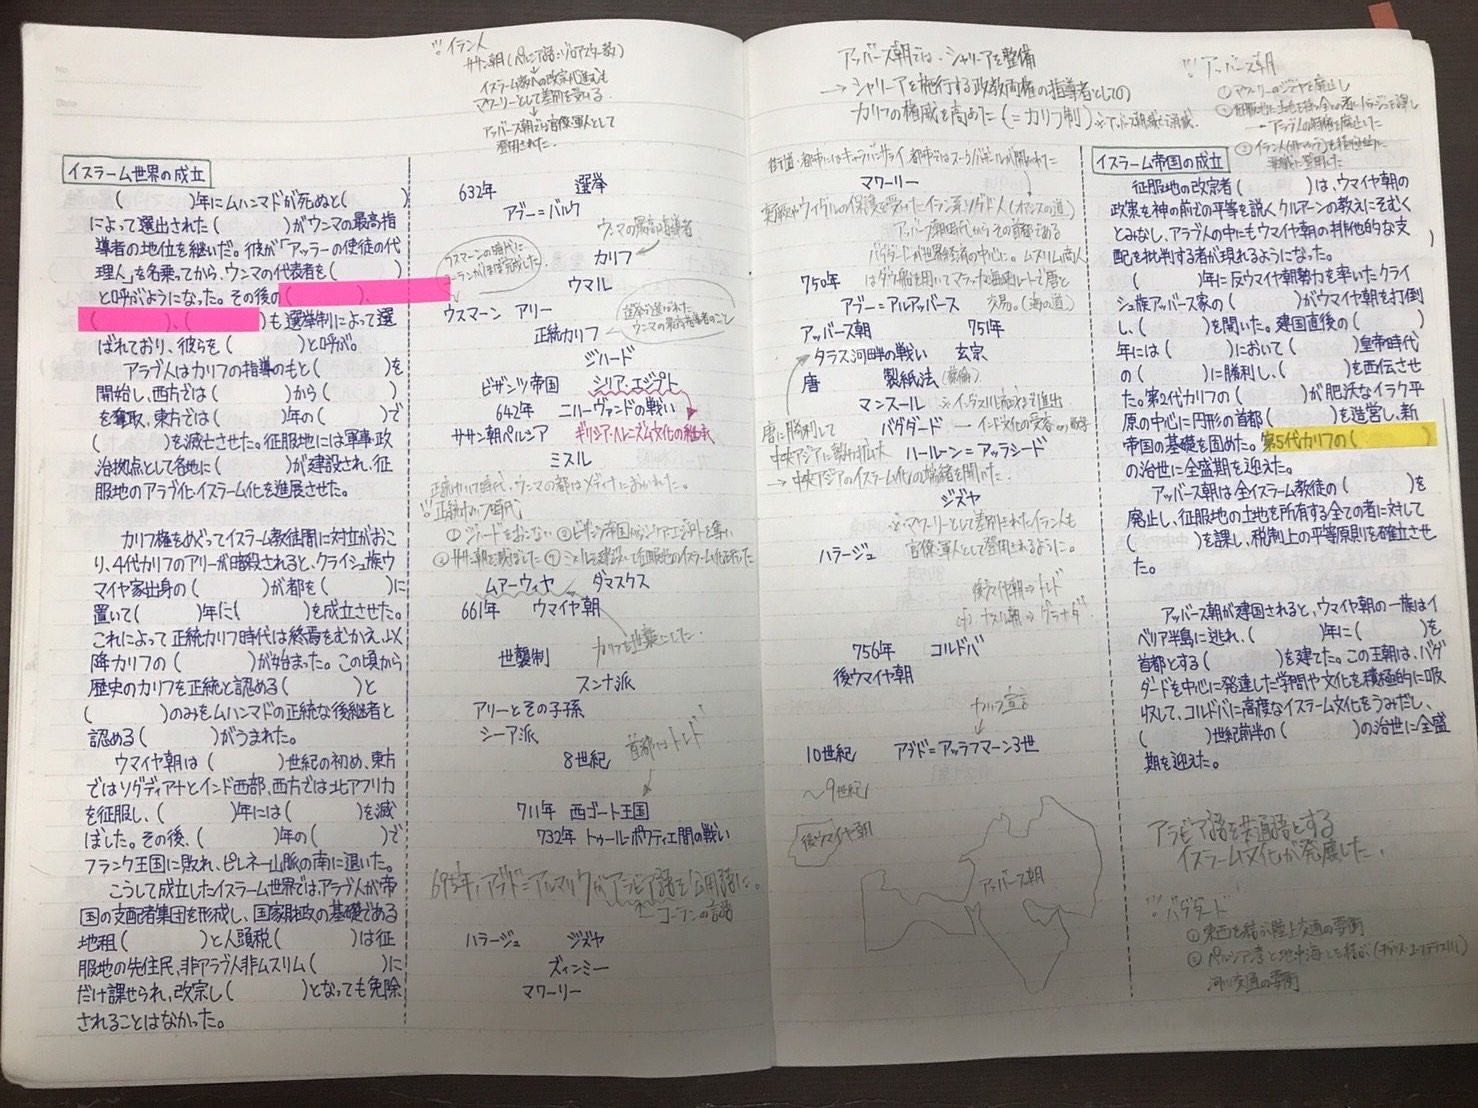 イラン人
ササン朝(ペルシア語・ゾロアスター教)
イスラーム教への改宗が進むも
マワーリーとして差別を受ける。
アッバース朝では官僚・軍人として
登用された。
イスラーム世界の成立
( )年にムハンマドが死ぬと( )
によって選出された( )がウンマの最高指
導者の地位を継いだ。彼が「アッラーの使徒の代
理人」を名乗ってから、ウンマの代表者を( )
と呼ぶようになった。その後の( )、
( )、( )も選挙制によって選
ばれており、彼らを( )と呼ぶ。
アラブ人はカリフの指導のもと( )を
開始し、西方では( )から( )
を奪取、東方では( )年の( )で
( )を滅亡させた。征服地には軍事・政
治拠点として各地に( )が建設され、征
服地のアラブ化・イスラーム化を進展させた。
カリフ権をめぐってイスラーム教徒間に対立がおこ
り、4代カリフのアリーが暗殺されると、クライシュ族ウ
マイヤ家出身の( )が都を( )に
置いて( )年に( )を成立させた。
これによって正統カリフ時代は終焉をむかえ、以
降カリフの( )が始まった。この頃から
歴史のカリフを正統と認める( )と
( )のみをムハンマドの正統な後継者と
認める( )がうまれた。
ウマイヤ朝は( )世紀の初め、東方
ではソグディアナとインド西部、西方では北アフリカ
を征服し、( )年には( )を滅
ぼした。その後、( )年の( )で
フランク王国に敗れ、ピレネー山脈の南に退いた。
こうして成立したイスラーム世界では、アラブ人が帝
国の支配者集団を形成し、国家財政の基礎である
地租( )と人頭税( )は征
服地の先住民、非アラブ人非ムスリム( )に
だけ課せられ、改宗し( )となっても免除
されることはなかった。
632年 選挙
アブー=バルク
ウンマの最高指導者
カリフ
ウスマーンの時代に
コーランがほぼ完成した。
ウマル
ウスマーン アリー
選挙で選ばれた
ウンマの最高指導者のこと
正統カリフ
ジハード
ビザンツ帝国 シリア・エジプト
642年 ニハーヴァンドの戦い
ササン朝ペルシア ギリシア・ヘレニズム文化の継承
ミスル
正統カリフ時代、ウンマの都はメディナにおかれた。
正統カリフ時代
① ジハードをおこない ② ビザンツ帝国からシリア・エジプトを奪い
③ ササン朝を滅ぼした ④ ミスルを建設して征服地のイスラーム化を行った
ムアーウィヤ ダマスクス
661年 ウマイヤ朝
カリフを世襲にした。
世襲制
スンナ派
アリーとその子孫
シーア派
8世紀
首都はトレド
711年 西ゴート王国
732年 トゥール・ポワティエ間の戦い
695年、アブド=アルマリクがアラビア語を公用語に。
コーランの言語
ハラージュ ジズヤ
ズィンミー
マワーリー
アッバース朝では、シャリーアを整備
→シャリーアを施行する政教両権の指導者としての
カリフの権威を高めた(=カリフ制)
街道・都市にはキャラバンサライ、都市ではスーク/バザールが開かれた
マワーリー
突厥やウイグルの保護を受けたイラン系ソグド人(オアシスの道)
アッバース朝時代からその首都である
バグダードが世界経済の中心に。ムスリム商人
750年 はダウ船を用いてマラッカ海峡ルートで唐と
アブー=アルアッバース 交易。(海の道)
アッバース朝 751年
タラス河畔の戦い 玄宗
唐 製紙法(蔡倫)
マンスール
バグダード ― インド文化の受容
唐に勝利して
中央アジアに勢力拡大
ハールーン=アッラシード
→中央アジアのイスラーム化の端緒を開いた。
ジズヤ
※マワーリーとして差別されたイラン人も
官僚・軍人として登用されるように。
ハラージュ
後ウマイヤ朝⇒トレド
cf. ナスル朝⇒グラナダ
756年 コルドバ
後ウマイヤ朝
カリフ宣言
10世紀 アブド=アッラフマーン3世
～9世紀
後ウマイヤ朝
アッバース朝
アッバース朝
① マワーリーのジズヤを廃止し
② 征服地に土地を持つ全ての者にハラージュを課し
→アラブ人の特権を廃止した
イスラーム帝国の成立
征服地の改宗者( )は、ウマイヤ朝の
政策を神の前での平等を説くクルアーンの教えにそむく
とみなし、アラブ人の中にもウマイヤ朝の排他的な支
配を批判する者が現れるようになった。
( )年に反ウマイヤ朝勢力を率いたクライ
シュ族アッバース家の( )がウマイヤ朝を打倒
し、( )を開いた。建国直後の( )
年には( )において( )皇帝時代
の( )に勝利し、( )を西伝させ
た。第2代カリフの( )が肥沃なイラク平
原の中心に円形の首都( )を造営し、新
帝国の基礎を固めた。第5代カリフの( )
の治世に全盛期を迎えた。
アッバース朝は全イスラーム教徒の( )を
廃止し、征服地の土地を所有する全ての者に対して
( )を課し、税制上の平等原則を確立させ
た。
アッバース朝が建国されると、ウマイヤ朝の一族はイ
ベリア半島に逃れ、( )年に( )を
首都とする( )を建てた。この王朝は、バグ
ダードを中心に発達した学問や文化を積極的に吸
収して、コルドバに高度なイスラーム文化をうみだし、
( )世紀前半の( )の治世に全盛
期を迎えた。
アラビア語を共通語とする
イスラーム文化が発展した。
バグダード
① 東西を結ぶ陸上交通の要衝
② ペルシア湾と地中海とを結ぶ(チグリス・ユーフラテス川)
河川交通の要衝